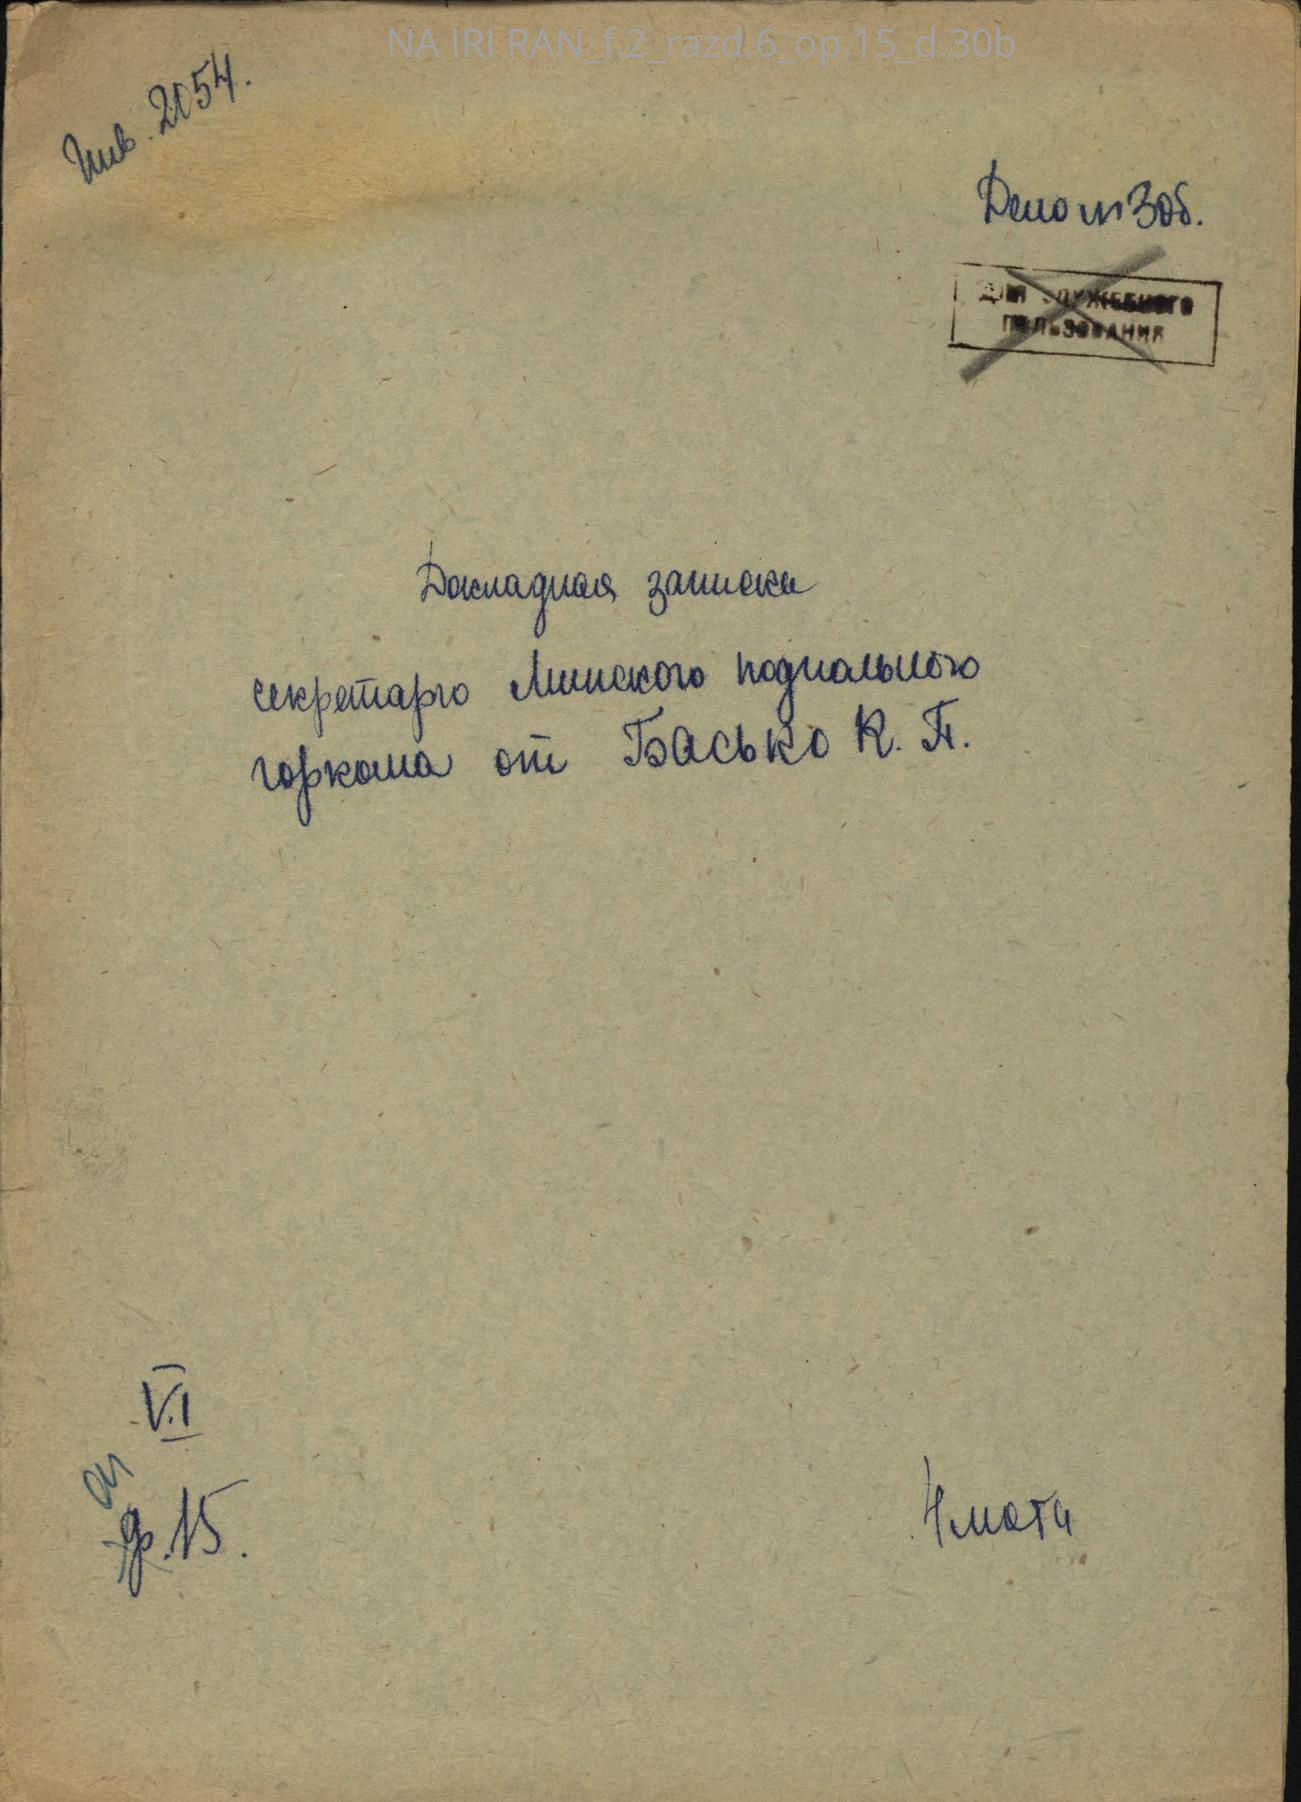 NA IRI RAN_f.2_razd.6_op.15_d.30b
Инв. 2054.
Дело № 30б.
ДЛЯ СЛУЖЕБНОГО
ПОЛЬЗОВАНИЯ
Докладная записка
секретарю Минского подпольного
горкома от Басько К. П.
VI
оп
ф. 15.
4 листа